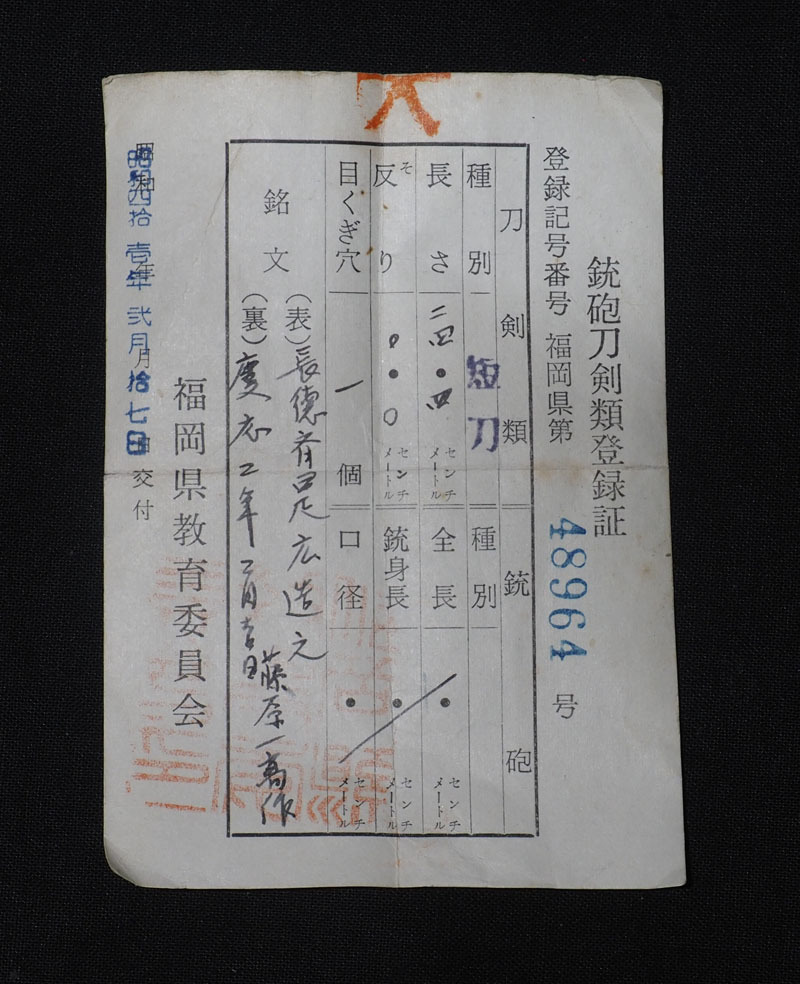 銃砲刀剣類登録証
登録記号番号 福岡県第 48964 号
刀剣類 銃砲
種別 短刀 種別
長さ 二四・四 センチメートル 全長 ・ センチメートル
反り そ 〇・〇 センチメートル 銃身長 ・ センチメートル
目くぎ穴 一 個 口径 ・ センチメートル
銘文
(表)長徳斉 広造之
藤原一高作
(裏)慶応二年二月吉日
昭和四拾壱年弐月拾七日交付
福岡県教育委員会